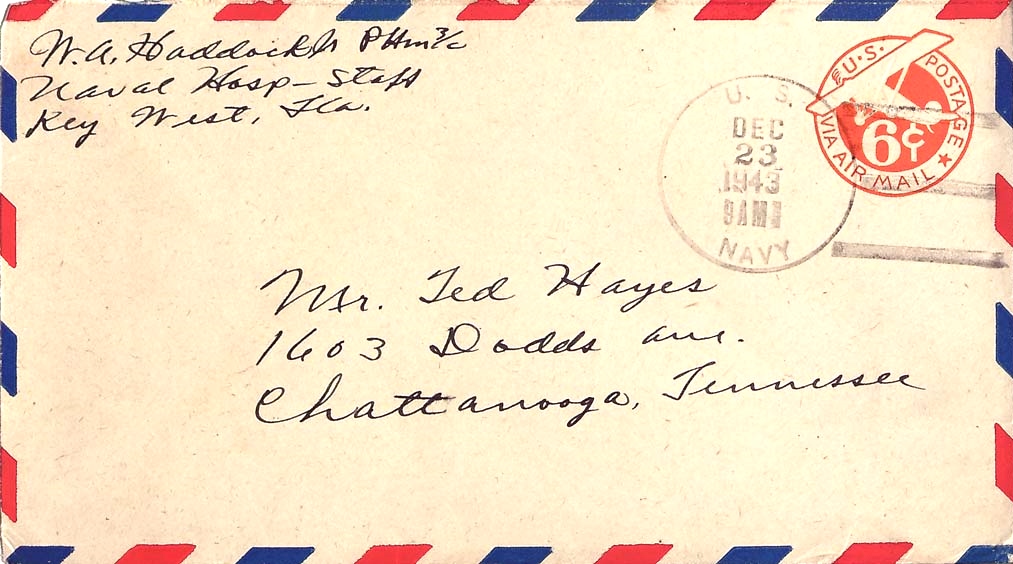 W. A. Haddock Jr PHM 3/c
Naval Hosp - Staff
Key West, Fla.
U.S. POSTAGE
6¢
VIA AIR MAIL
U. S.
DEC
23
1943
9 AM
NAVY
Mr. Ted Hayes
1603 Dodds ave.
Chattanooga, Tennessee